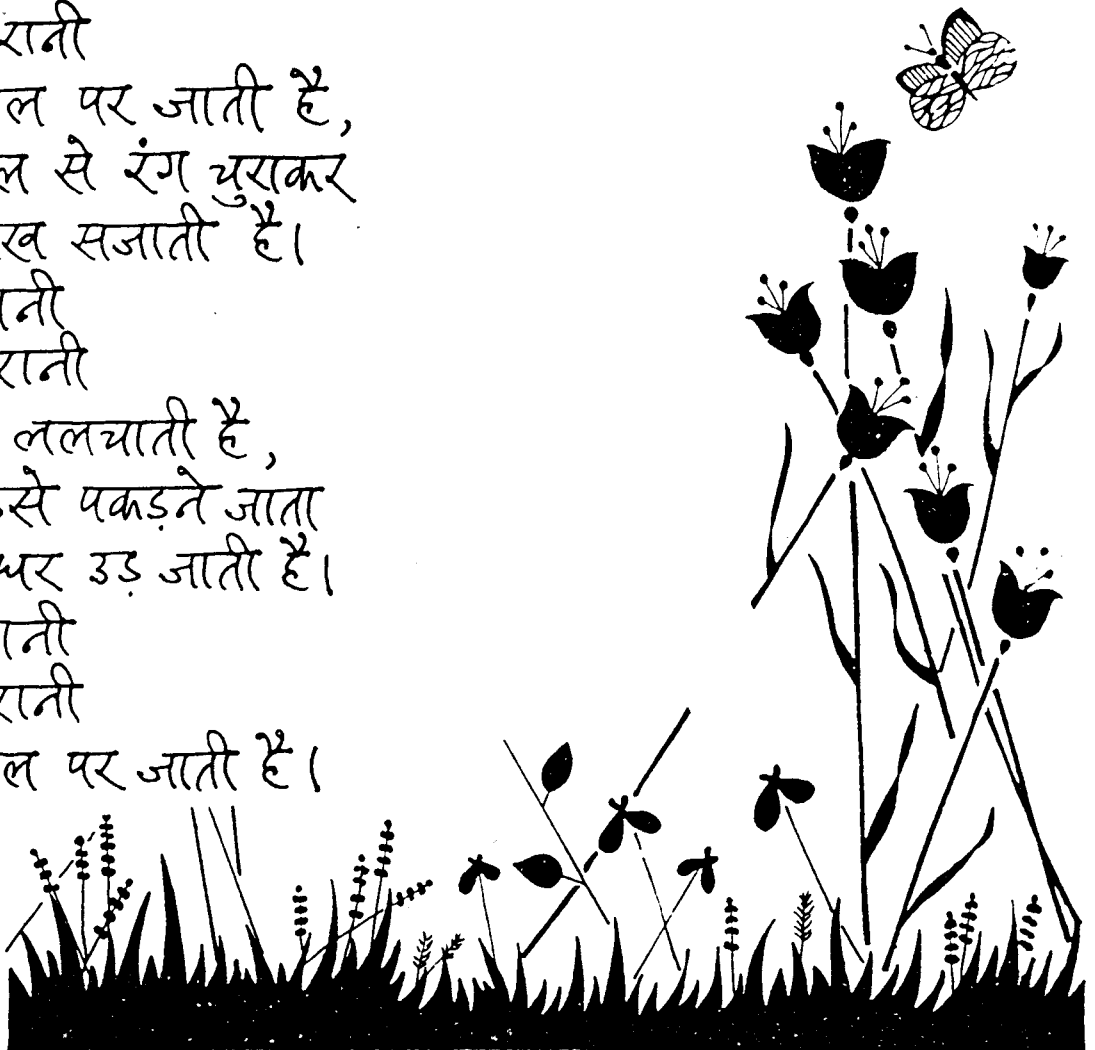 रानी
ल पर जाती है,
ल से रंग चुराकर
ख सजाती है।
ानी
रानी
ललचाती है,
से पकड़ने जाता
धर उड़ जाती है।
ानी
रानी
ल पर जाती है।